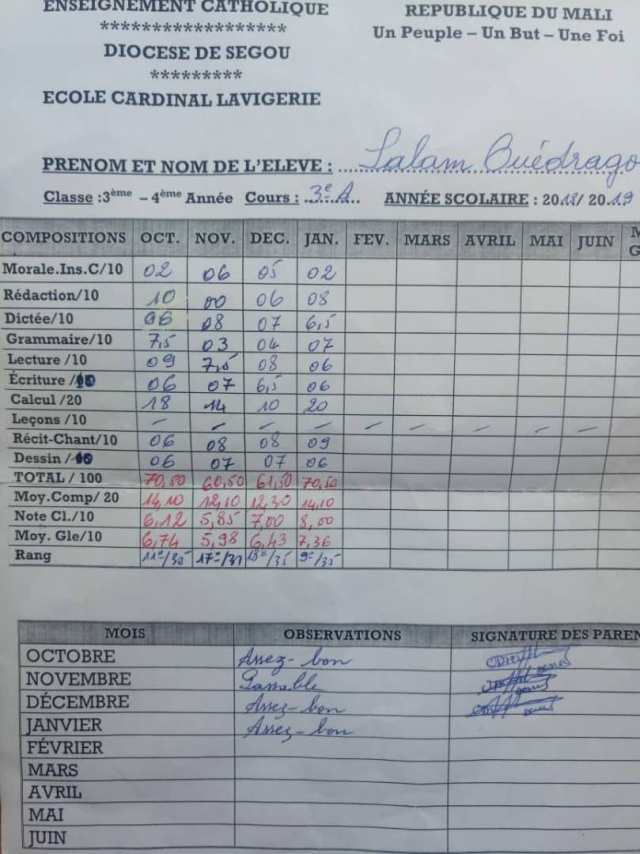 ENSEIGNEMENT CATHOLIQUE
REPUBLIQUE DU MALI
*****************
Un Peuple – Un But – Une Foi
DIOCESE DE SEGOU
*********
ECOLE CARDINAL LAVIGERIE
PRENOM ET NOM DE L'ELEVE : Salam Ouédrago
Classe :3ème – 4ème Année Cours : 3e A ANNÉE SCOLAIRE : 2018/ 2019
COMPOSITIONS OCT. NOV. DEC. JAN. FEV. MARS AVRIL MAI JUIN
Morale.Ins.C/10 02 06 05 02
Rédaction/10 10 00 06 08
Dictée/10 06 08 07 6,5
Grammaire/10 7,5 03 04 07
Lecture /10 09 7,5 08 06
Écriture /10 06 07 6,5 06
Calcul /20 18 14 10 20
Leçons /10 – – – – – – – – –
Récit-Chant/10 06 08 08 09
Dessin /10 06 07 07 06
TOTAL / 100 70,50 60,50 61,50 70,50
Moy.Comp/ 20 14,10 12,10 12,30 14,10
Note Cl./10 6,12 5,85 7,00 8,00
Moy. Gle/10 6,74 5,98 6,43 7,36
Rang 11e/35 17e/31 13e/35 9e/35
MOIS OBSERVATIONS SIGNATURE DES PAREN
OCTOBRE Assez-bon
NOVEMBRE Passable
DÉCEMBRE Assez-bon
JANVIER Assez-bon
FÉVRIER
MARS
AVRIL
MAI
JUIN